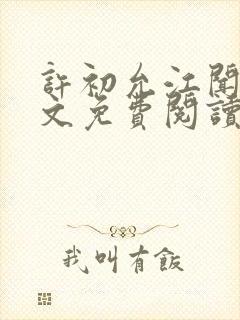 許初允江聞
文免費閱讀
我叫有飯